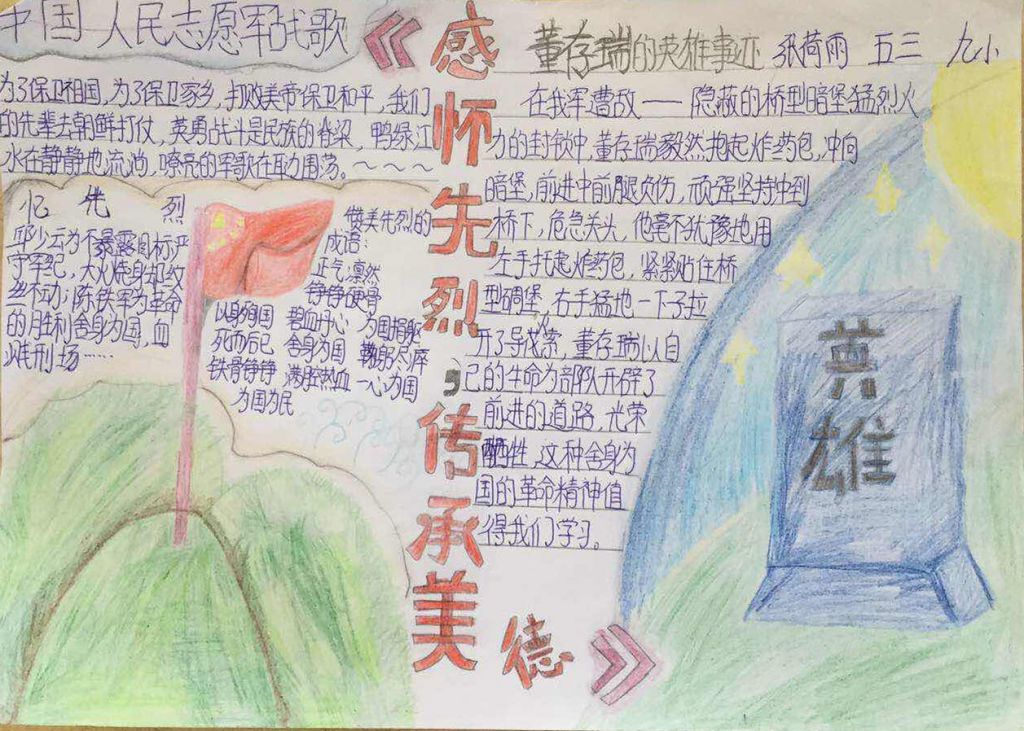 中国人民志愿军战歌
为了保卫祖国,为了保卫家乡,打败美帝保卫和平,我们
的先辈去朝鲜打仗,英勇战斗是民族的脊梁,鸭绿江
水在静静地流淌,嘹亮的军歌在耳边回荡。~~~~
忆先烈
邱少云为不暴露目标严
守军纪,大火烧身却纹
丝不动;陈铁军为革命
的胜利舍身为国,血
洒刑场……
赞美先烈的
成语:
正气凛然
铮铮硬骨
以身殉国 碧血丹心 为国捐躯
死而后已 舍身为国 鞠躬尽瘁
铁骨铮铮 满腔热血 一心为国
为国为民
《感怀先烈,传承美德》
董存瑞的英雄事迹 张荷雨 五三 九小
在我军遭敌——隐蔽的桥型暗堡猛烈火
力的封锁中,董存瑞毅然抱起炸药包,冲向
暗堡,前进中前腿负伤,顽强坚持冲到
桥下,危急关头,他毫不犹豫地用
左手托起炸药包,紧紧贴住桥
型碉堡,右手猛地一下子拉
开了导火索,董存瑞以自
己的生命为部队开辟了
前进的道路,光荣
牺牲,这种舍身为
国的革命精神值
得我们学习。
英
雄